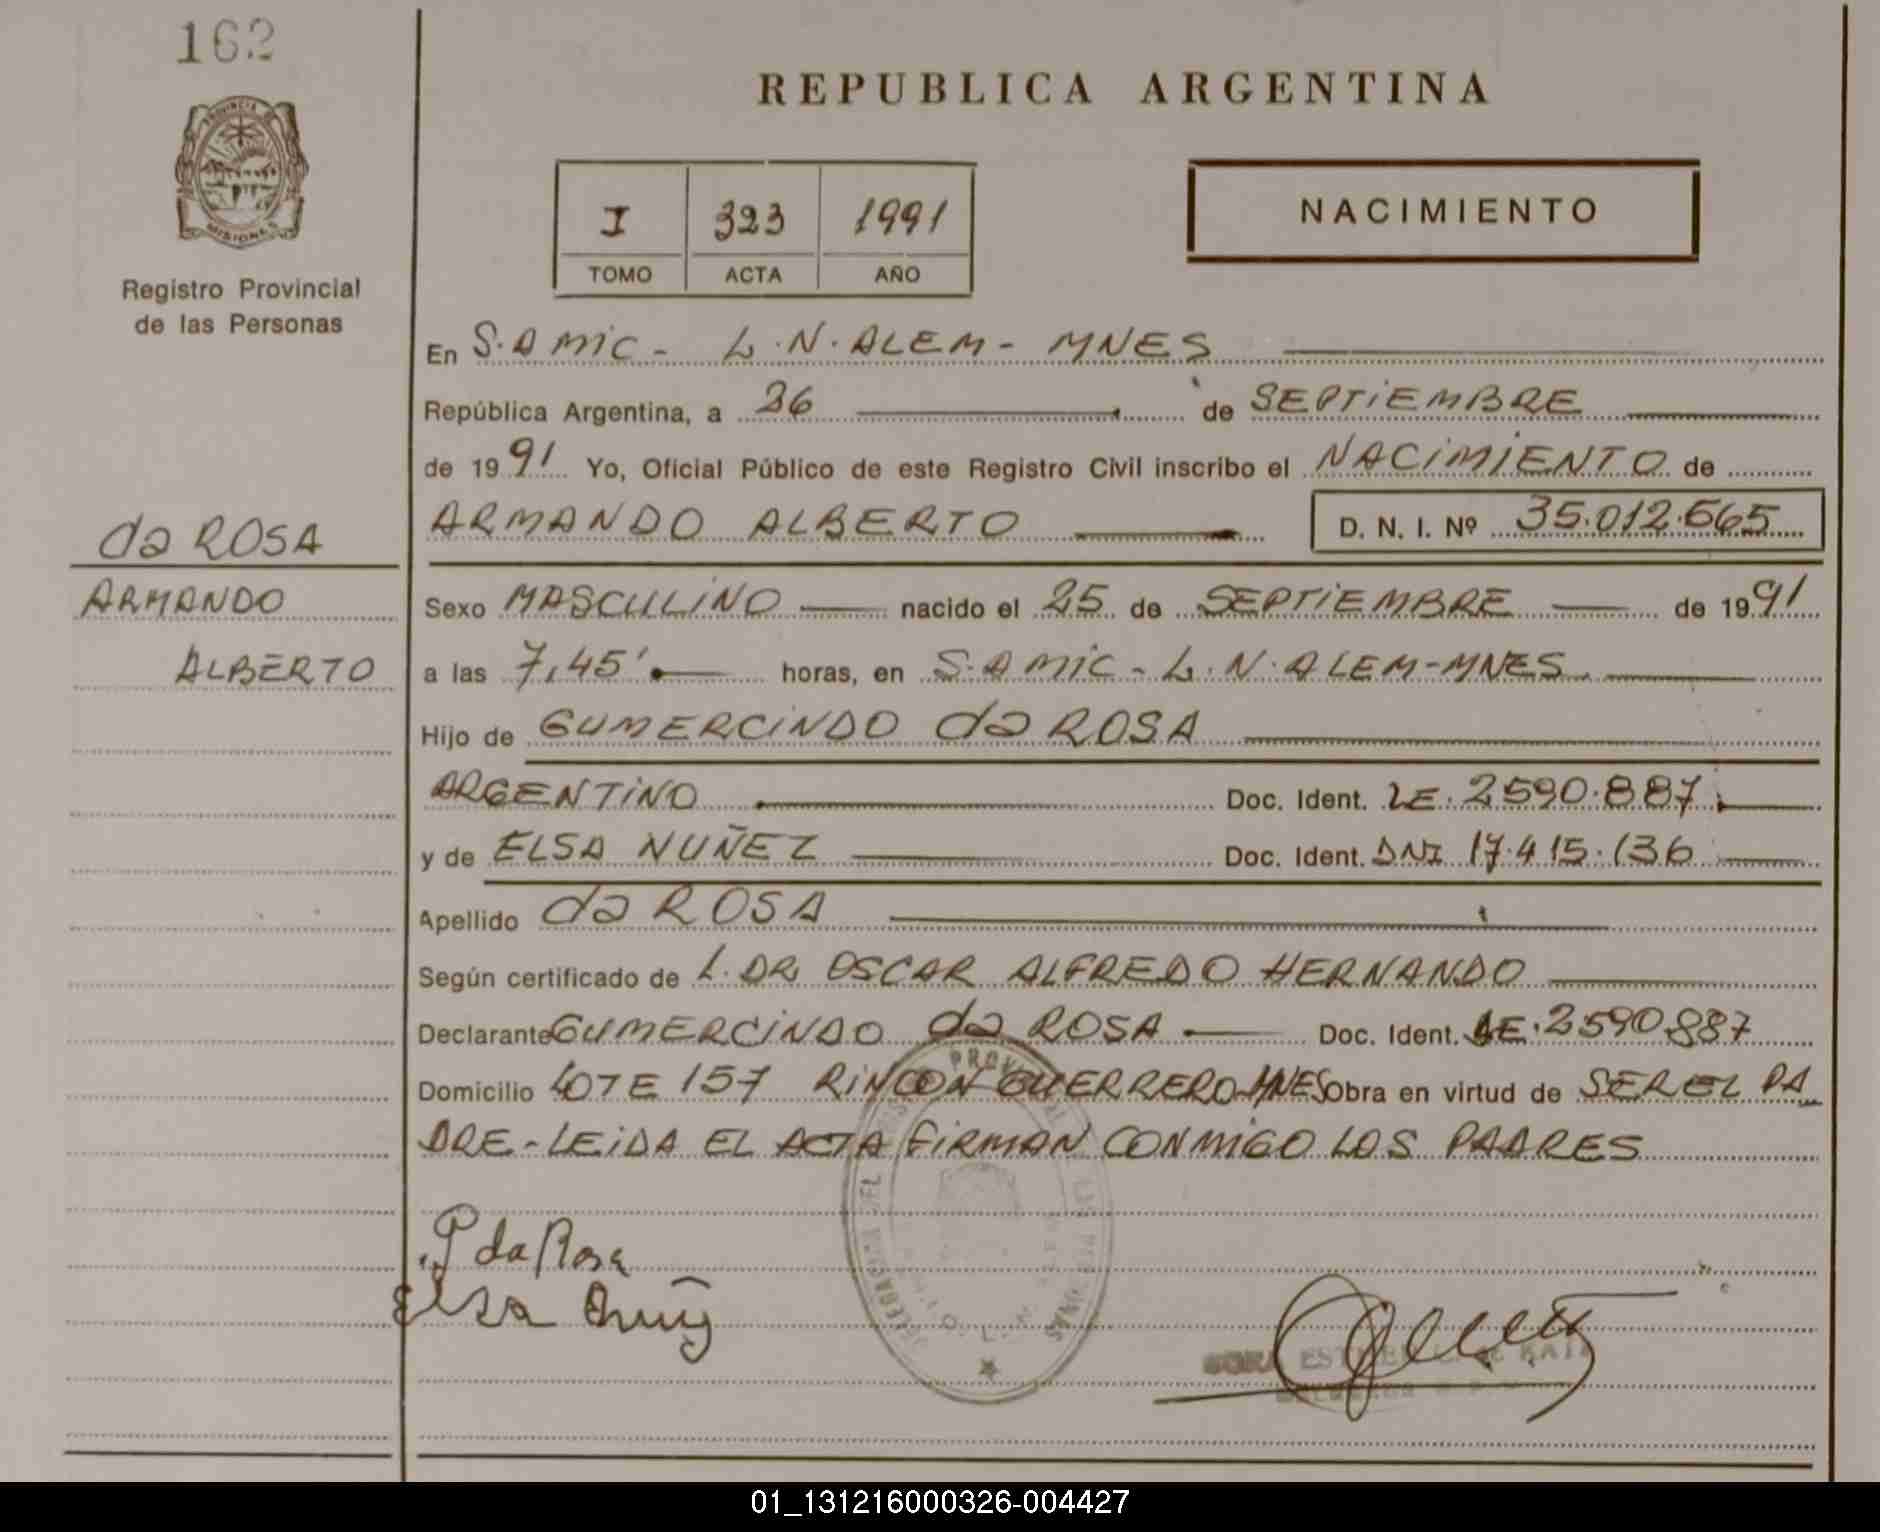 162
PROVINCIA DE
MISIONES
Registro Provincial
de las Personas
da ROSA
ARMANDO
ALBERTO
REPUBLICA ARGENTINA
I 323 1991
TOMO ACTA AÑO
NACIMIENTO
En S. A MiC - L. N. ALEM - MNES
República Argentina, a 26 de SEPTiEMBRE
de 1991 Yo, Oficial Público de este Registro Civil inscribo el NACiMiENTO de
ARMANDO ALBERTO D. N. I. Nº 35.012.665
Sexo MASCULiNO nacido el 25 de SEPTiEMBRE de 1991
a las 7,45' horas, en S. A MiC - L. N. ALEM - MNES
Hijo de GUMERCiNDO da ROSA
ARGENTiNO Doc. Ident. LE. 2590.887
y de ELSA NUÑEZ Doc. Ident. DNI 17.415.136
Apellido da ROSA
Según certificado de L. DR. OSCAR ALFREDO HERNANDO
Declarante GUMERCiNDO da ROSA Doc. Ident. LE. 2590887
Domicilio LOTE 157 RiNCON GUERRERO MNES Obra en virtud de SER EL PA
DRE - LEiDA EL ACTA FiRMAN CONMiGO LOS PADRES
da Rosa
Elsa
DELEGACION DEL PROVINCIAL DE LAS PERSONAS
01_131216000326-004427